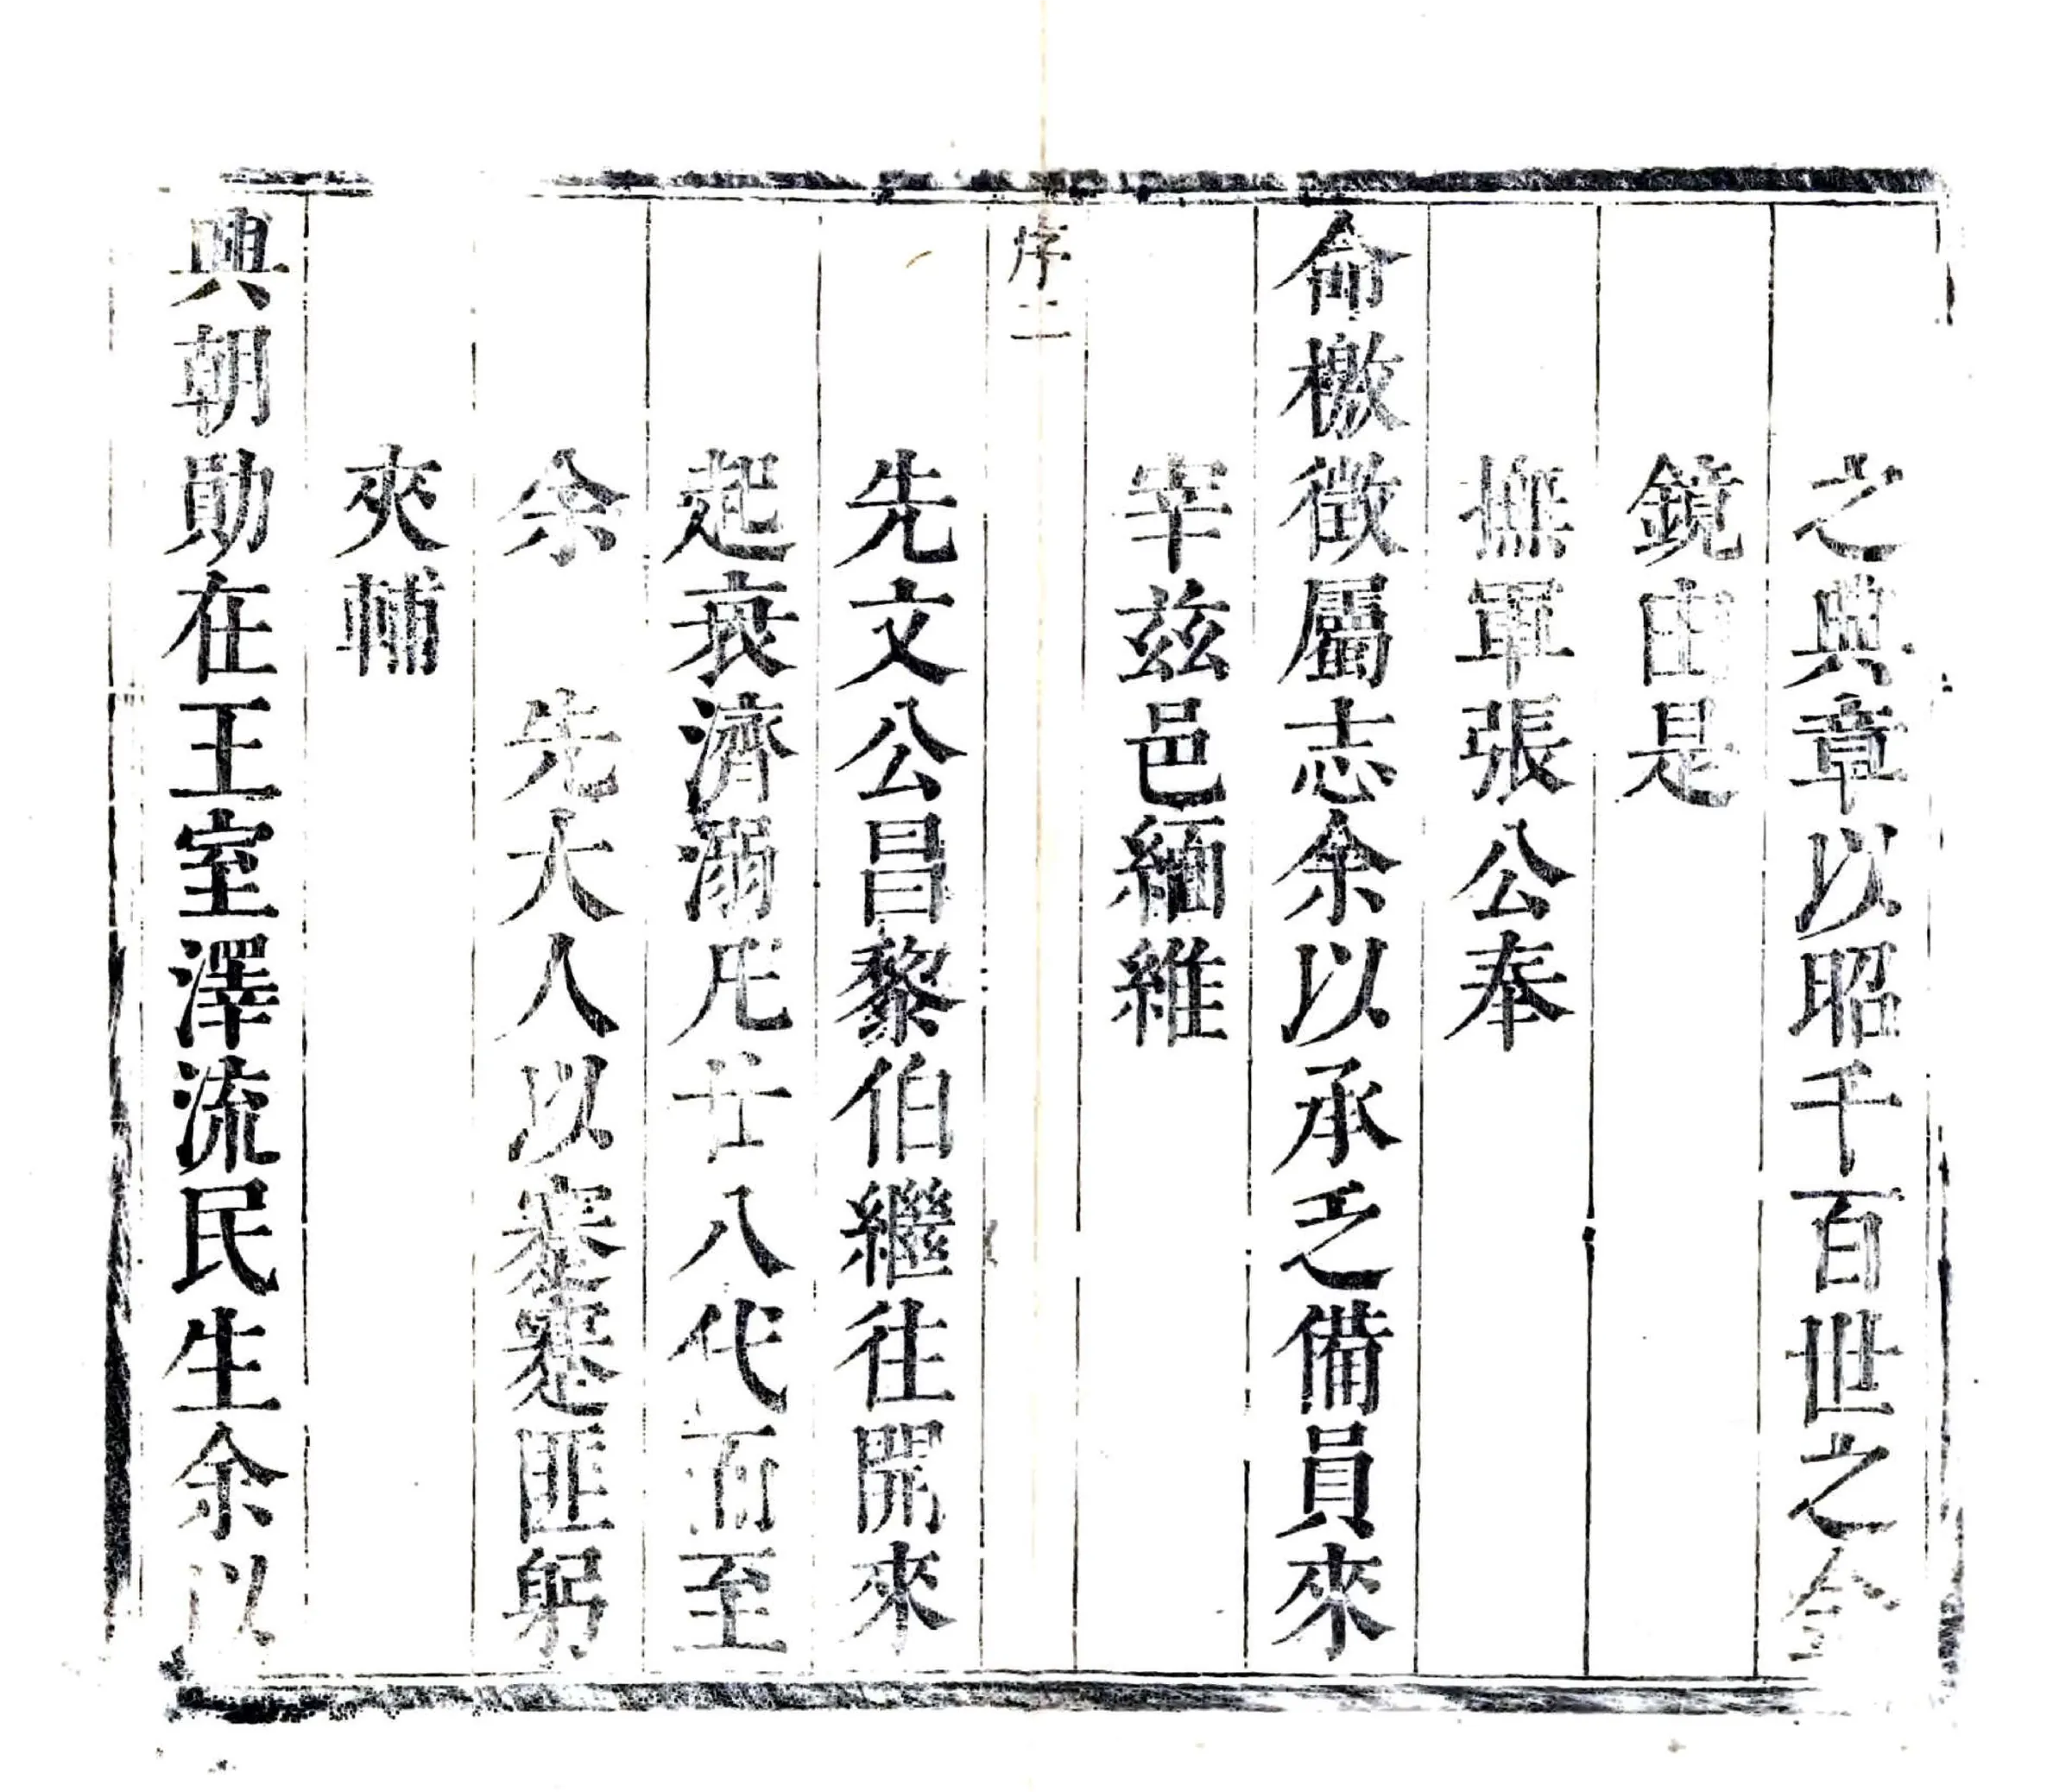 之典章以昭千百世之金
鏡由是
撫軍張公奉
命檄徵屬志余以承乏備員來
宰兹邑緬維
序二
先文公昌黎伯繼往開來
起衰濟溺凡廿八代而至
余　先大人以蹇蹇匪躬
夾輔
興朝勛在王室澤流民生余以